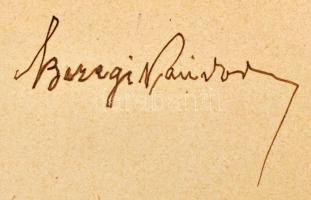 Beregi Nándor